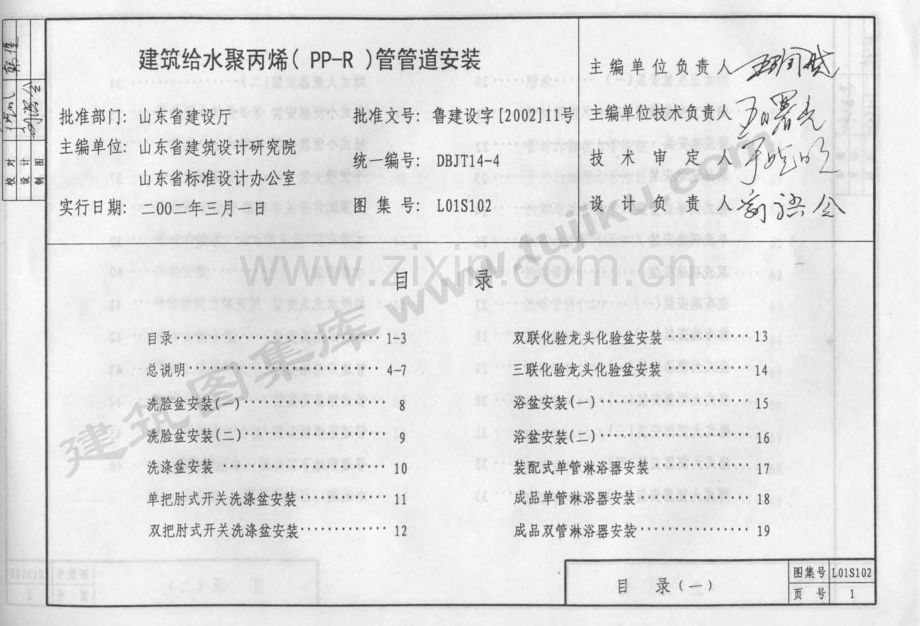 建筑给水聚丙烯( PP-R )管管道安装
批准部门: 山东省建设厅
主编单位: 山东省建筑设计研究院
山东省标准设计办公室
实行日期: 二00二年三月一日
批准文号: 鲁建设字[2002]11号
统一编号: DBJT14-4
图 集 号: L01S102
主编单位负责人
主编单位技术负责人
技 术 审 定 人
设 计 负 责 人
校 对
设 计
制 图
目 录
目录 1-3
总说明 4-7
洗脸盆安装(一) 8
洗脸盆安装(二) 9
洗涤盆安装 10
单把肘式开关洗涤盆安装 11
双把肘式开关洗涤盆安装 12
双联化验龙头化验盆安装 13
三联化验龙头化验盆安装 14
浴盆安装(一) 15
浴盆安装(二) 16
装配式单管淋浴器安装 17
成品单管淋浴器安装 18
成品双管淋浴器安装 19
目 录(一)
图集号 L01S102
页 号 1
建筑图集库 www.tujiku.com
www.zixin.com.cn